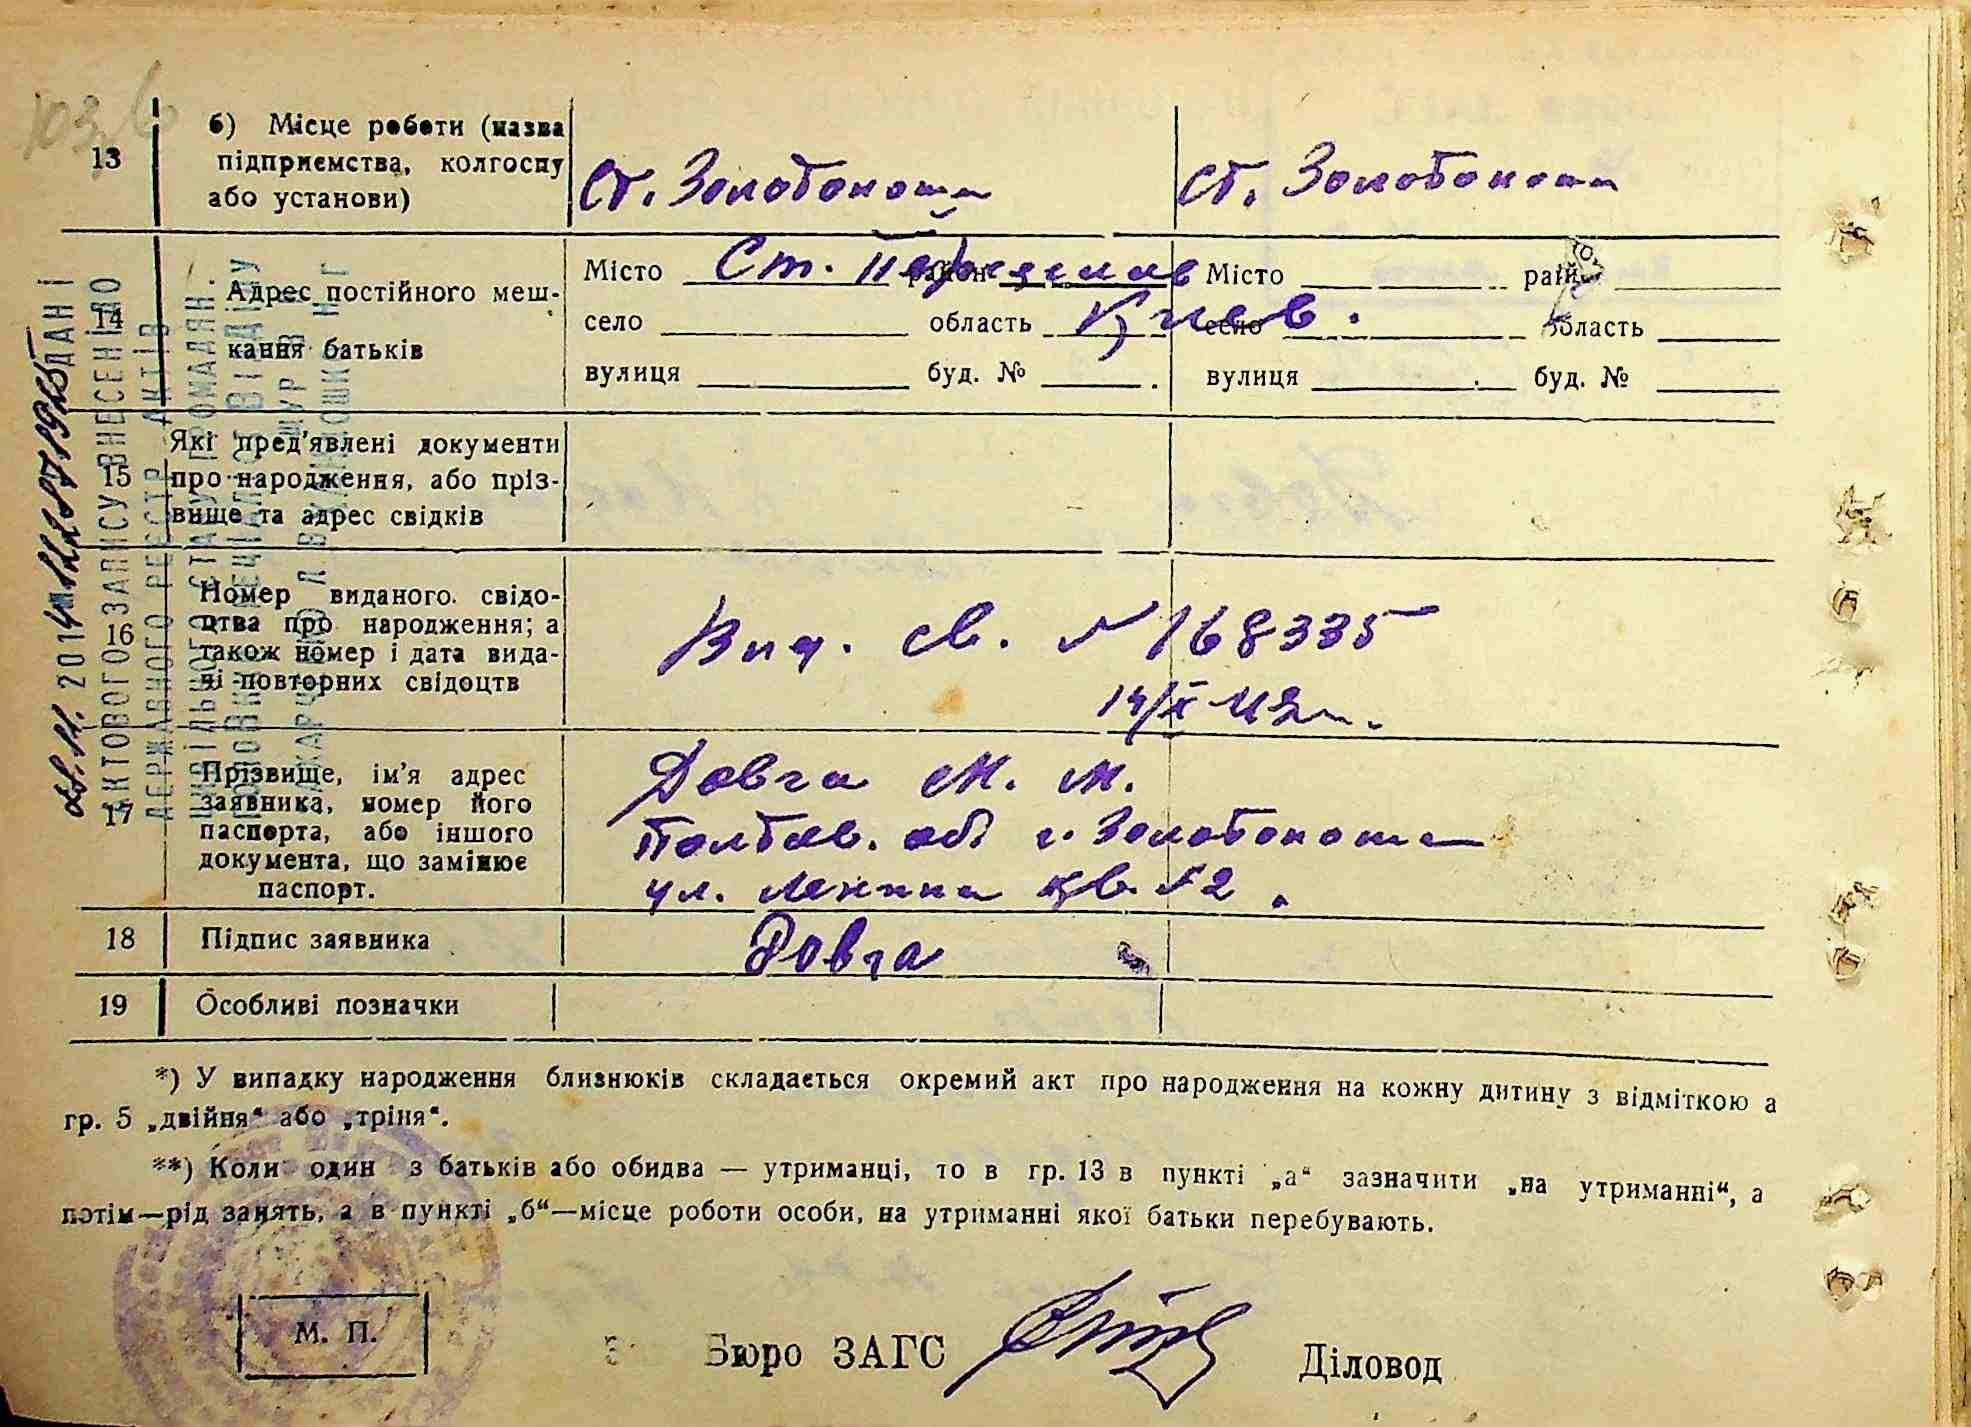 13
б) Місце роботи (назва
підприємства, колгоспу
або установи)
Ст. Золотоноша
Ст. Золотоноша
14
Адрес постійного меш-
кання батьків
Місто Ст. Переяслав район
село область Киев.
вулиця буд. №
Місто район
село область
вулиця буд. №
15
Які пред'явлені документи
про народження, або пріз-
вище та адрес свідків
16
Номер виданого свідо-
цтва про народження; а
також номер і дата вида-
чі повторних свідоцтв
Вид. св. № 168335
14/X 42 г.
17
Прізвище, ім'я адрес
заявника, номер його
паспорта, або іншого
документа, що замінює
паспорт.
Довга М. М.
Полтав. об г. Золотоноша
ул. Ленина кв. №2.
18
Підпис заявника
Довга
19
Особливі позначки
*) У випадку народження близнюків складається окремий акт про народження на кожну дитину з відміткою а
гр. 5 „двійня“ або „тріня“.
**) Коли один з батьків або обидва — утриманці, то в гр. 13 в пункті „а“ зазначити „на утриманні“, а
потім—рід занять, а в пункті „б“—місце роботи особи, на утриманні якої батьки перебувають.
М. П.
Бюро ЗАГС
Діловод
ДАНІ
АКТОВОГО ЗАПИСУ ВНЕСЕНІ ДО
ДЕРЖАВНОГО РЕЄСТР АКТІВ
ЦИВІЛЬНОГО СТАНУ ГРОМАДЯН.